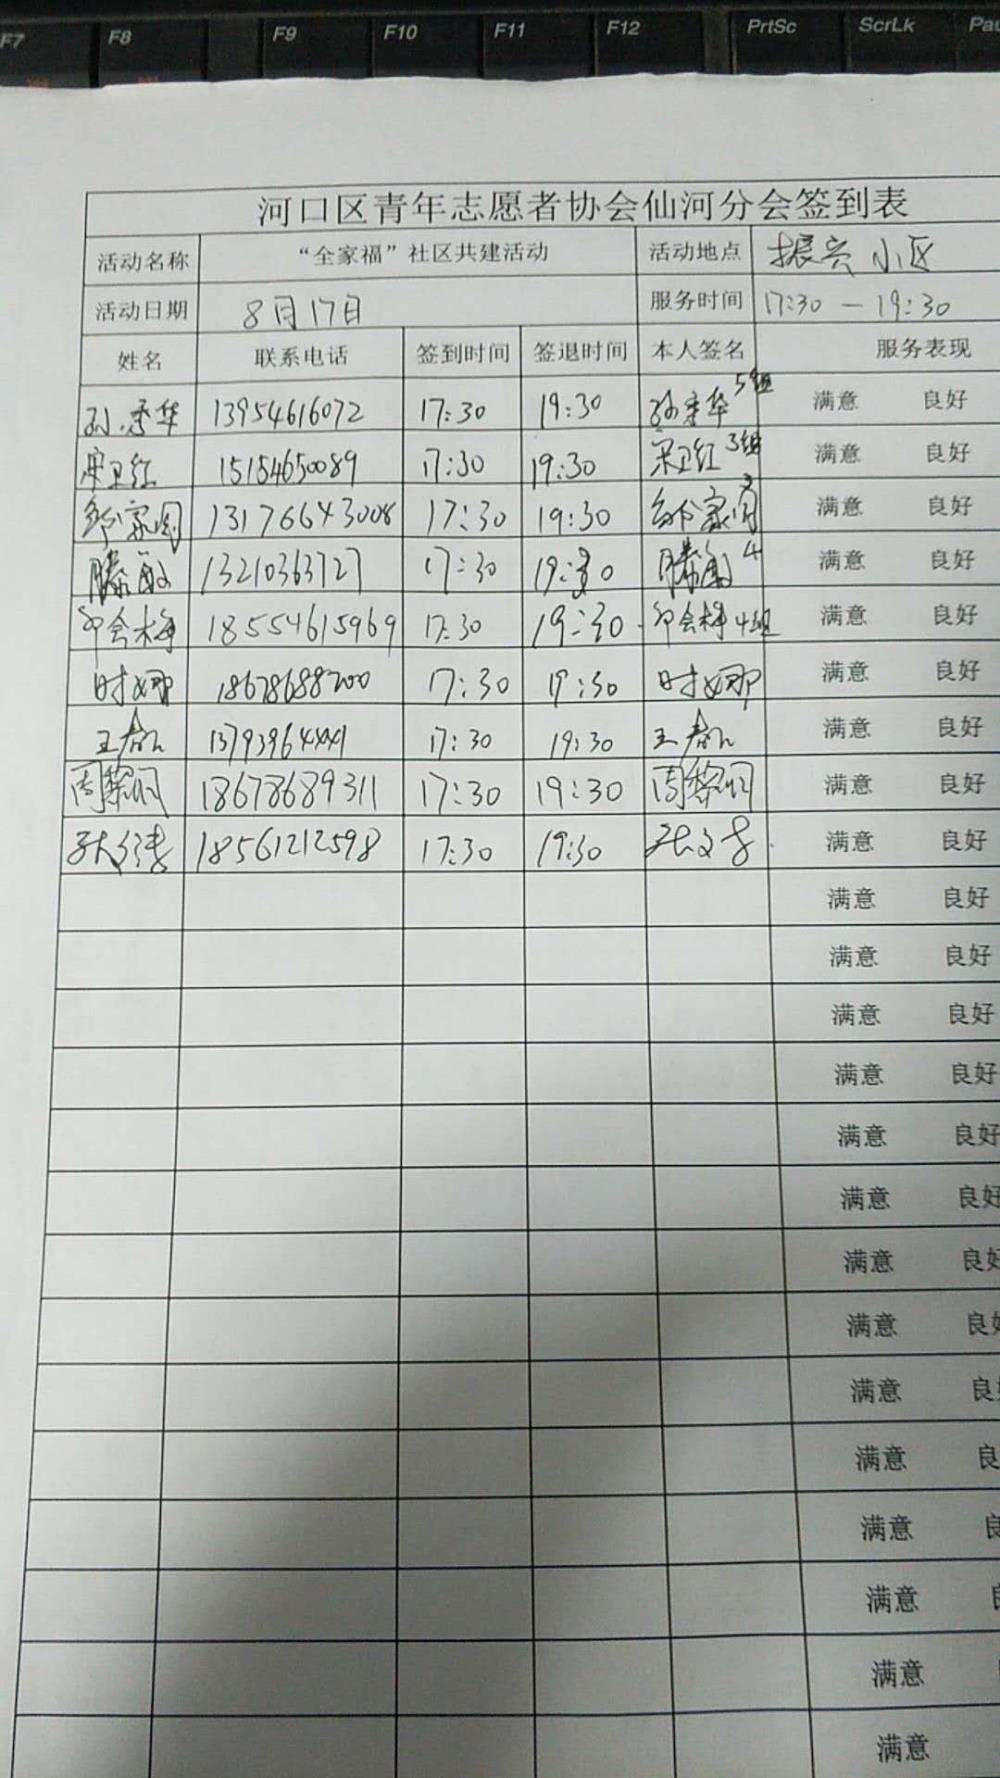 F7 F8 F9 F10 F11 F12 PrtSc ScrLk
河口区青年志愿者协会仙河分会签到表
活动名称 “全家福”社区共建活动 活动地点 振兴小区
活动日期 8月17日 服务时间 17:30 — 19:30
姓名 联系电话 签到时间 签退时间 本人签名 服务表现
13954616072 17:30 19:30 5组 满意 良好
宋卫红 15154650089 17:30 19:30 宋卫红 3组 满意 良好
13176643008 17:30 19:30 满意 良好
滕敏 13210363727 17:30 19:30 滕敏 4 满意 良好
18554615969 17:30 19:30 4组 满意 良好
时女那 18678688200 17:30 19:30 时女那 满意 良好
17:30 19:30 满意 良好
周黎明 18678689311 17:30 19:30 周黎明 满意 良好
18561212598 17:30 19:30 满意 良好
满意 良好
满意 良好
满意 良好
满意 良好
满意 良好
满意 良好
满意 良好
满意 良好
满意 良
满意 良
满意
满意
满意
满意